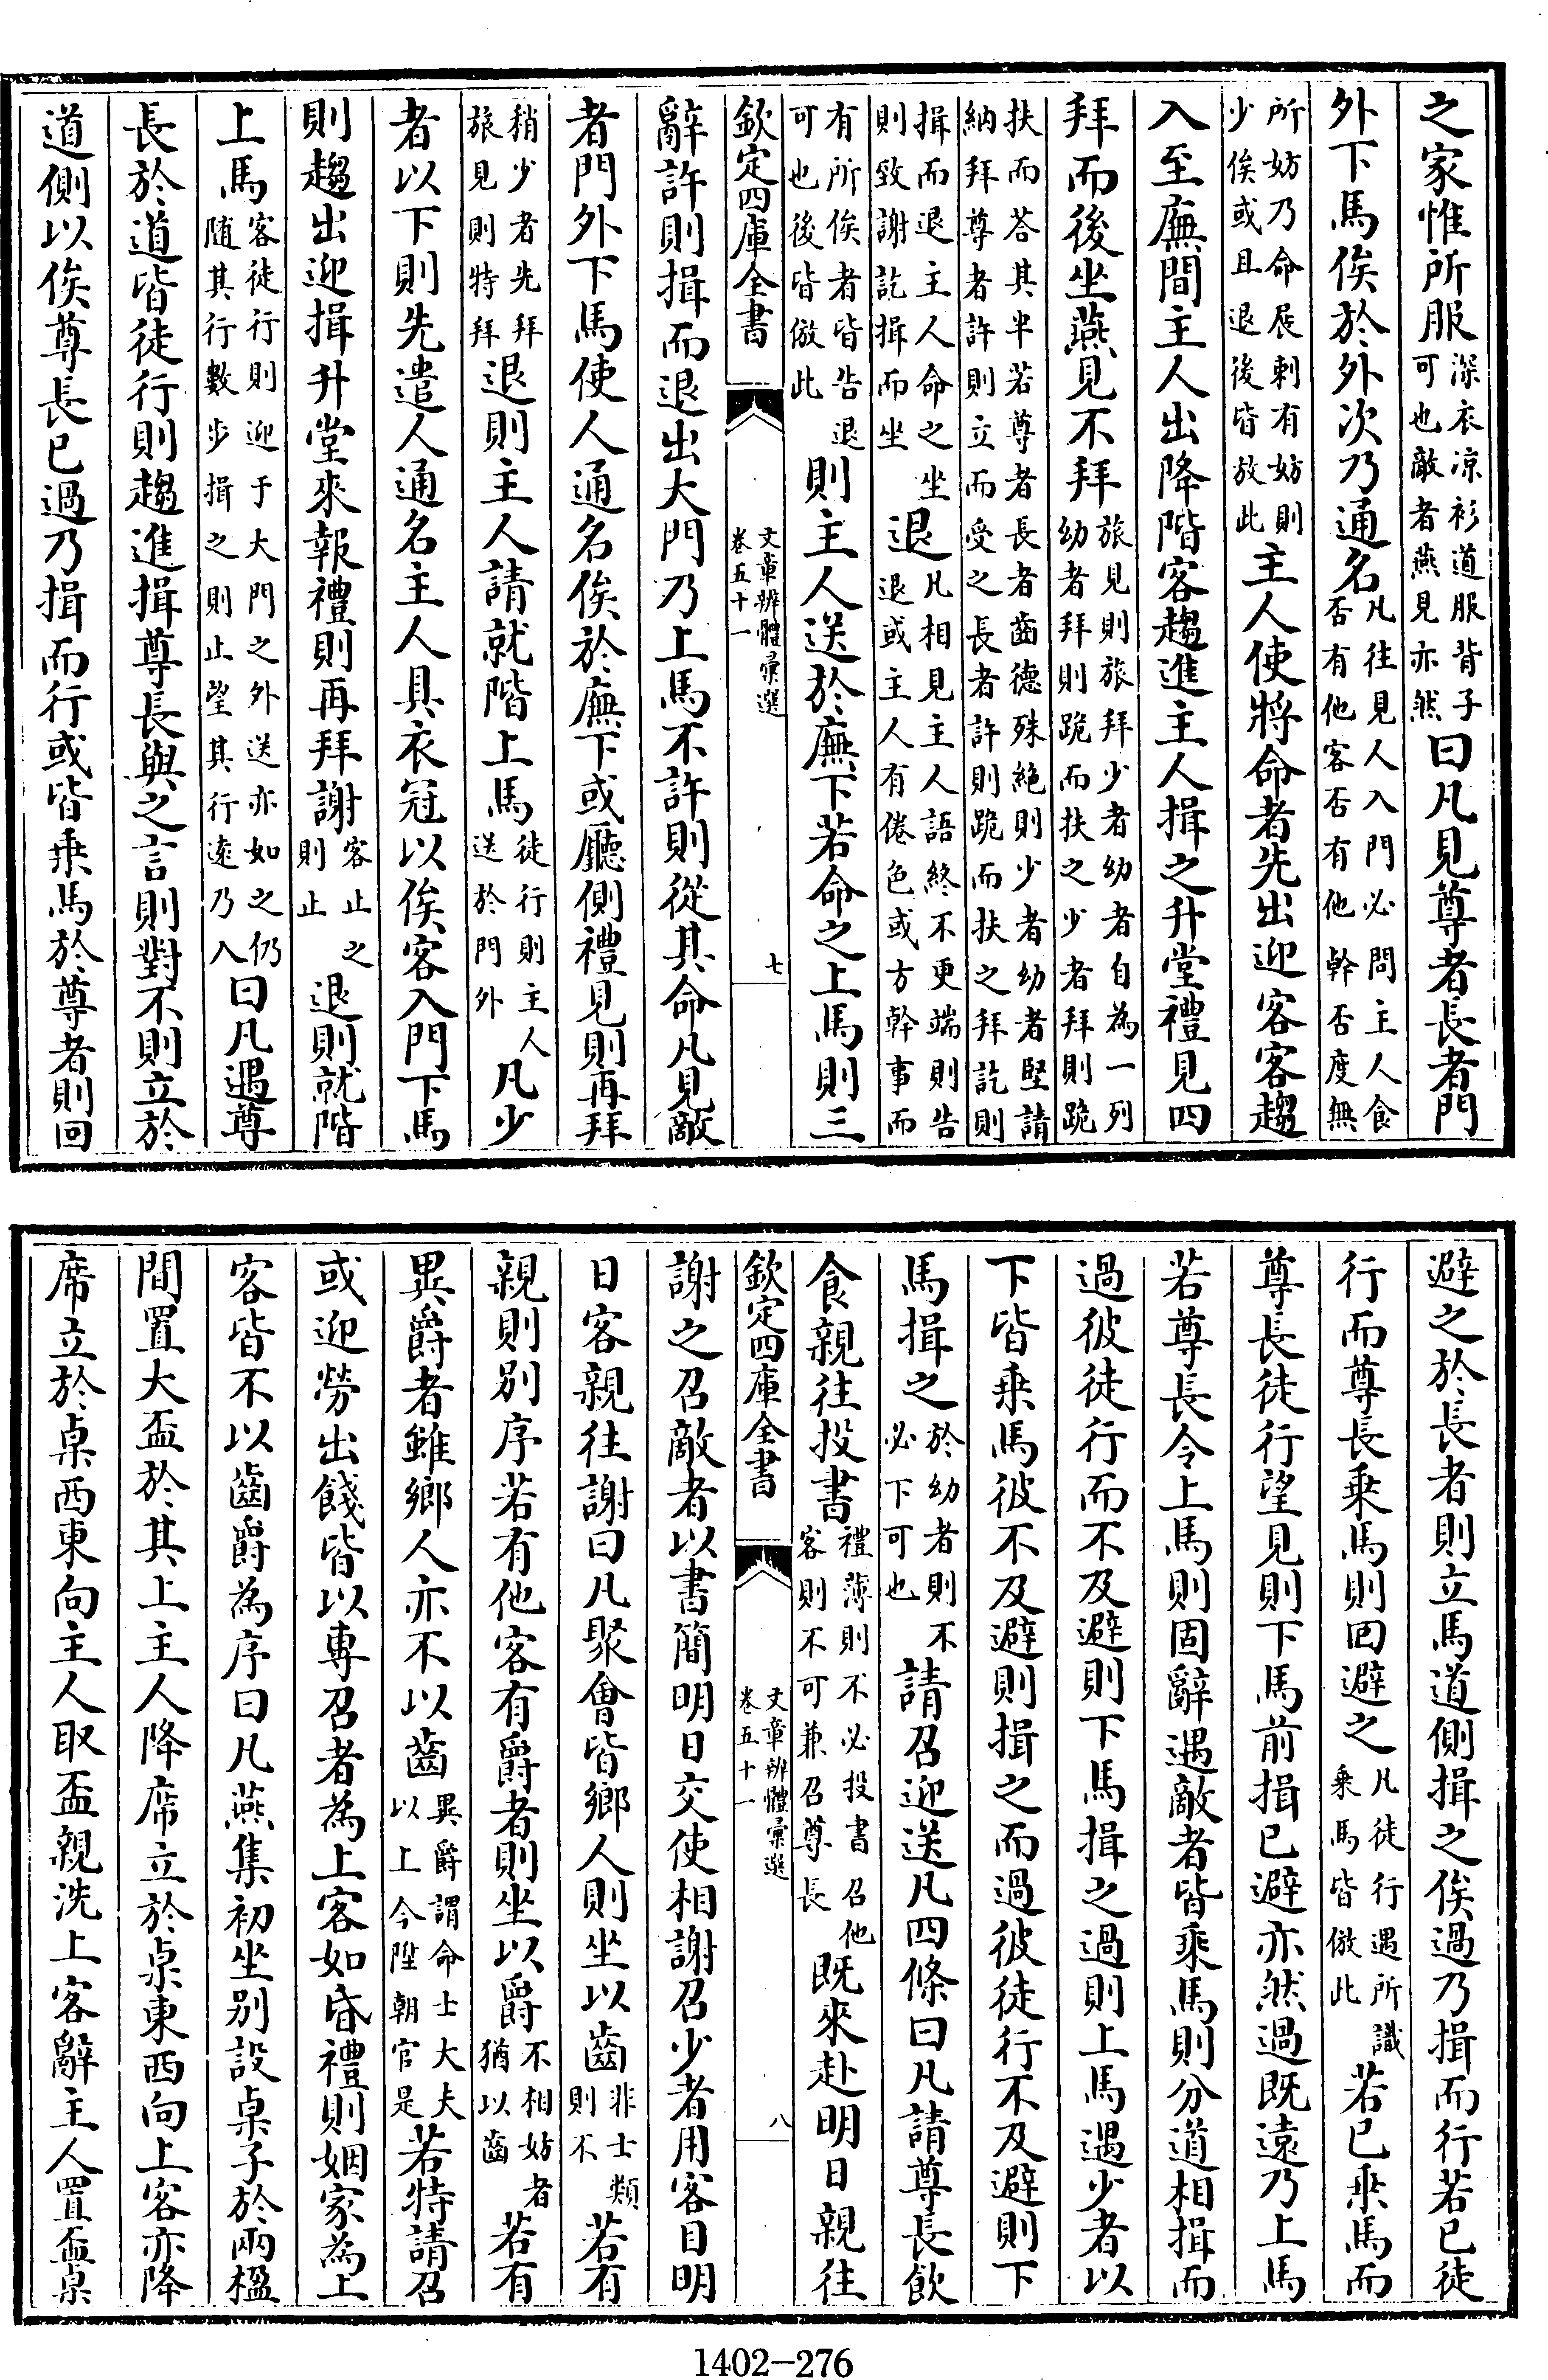 之家惟所服深衣凉衫道服背子可也敵者燕見亦然曰凡見尊者長者門
外下馬俟於外次乃通名凡往見人入門必問主人食否有他客否有他幹否度無
所妨乃命展刺有妨則少俟或且退後皆放此主人使將命者先出迎客客趨
入至廡間主人出降階客趨進主人揖之升堂禮見四
拜而後坐燕見不拜旅見則旅拜少者幼者自為一列幼者拜則跪而扶之少者拜則跪
扶而荅其半若尊者長者齒德殊絶則少者幼者堅請納拜尊者許則立而受之長者許則跪而扶之拜訖則
揖而退主人命之坐則致謝訖揖而坐退凡相見主人語終不更端則告退或主人有倦色或方幹事而
有所俟者皆告退可也後皆倣此則主人送於廡下若命之上馬則三
欽定四庫全書
文章辨體彚選
卷五十一
七
辭許則揖而退出大門乃上馬不許則從其命凡見敵
者門外下馬使人通名俟於廡下或廳側禮見則再拜
稍少者先拜旅見則特拜退則主人請就階上馬徒行則主人送於門外凡少
者以下則先遣人通名主人具衣冠以俟客入門下馬
則趨出迎揖升堂來報禮則再拜謝客止之則止退則就階
上馬客徒行則迎于大門之外送亦如之仍隨其行數步揖之則止望其行遠乃入曰凡遇尊
長於道皆徒行則趨進揖尊長與之言則對不則立於
道側以俟尊長已過乃揖而行或皆乗馬於尊者則回
避之於長者則立馬道側揖之俟過乃揖而行若已徒
行而尊長乗馬則回避之凡徒行遇所識乗馬皆倣此若已乗馬而
尊長徒行望見則下馬前揖已避亦然過既遠乃上馬
若尊長令上馬則固辭遇敵者皆乗馬則分道相揖而
過彼徒行而不及避則下馬揖之過則上馬遇少者以
下皆乗馬彼不及避則揖之而過彼徒行不及避則下
馬揖之於幼者則不必下可也請召迎送凡四條曰凡請尊長飲
食親往投書禮薄則不必投書召他客則不可兼召尊長既來赴明日親往
欽定四庫全書
文章辨體彚選
卷五十一
八
謝之召敵者以書簡明日交使相謝召少者用客目明
日客親往謝曰凡聚會皆鄉人則坐以齒非士類則不若有
親則别序若有他客有爵者則坐以爵不相妨者猶以齒若有
異爵者雖鄉人亦不以齒異爵謂命士大夫以上今陞朝官是若特請召
或迎勞出餞皆以專召者為上客如昏禮則姻家為上
客皆不以齒爵為序曰凡燕集初坐别設桌子於兩楹
間置大盃於其上主人降席立於桌東西向上客亦降
席立於桌西東向主人取盃親洗上客辭主人置盃桌
1402-276